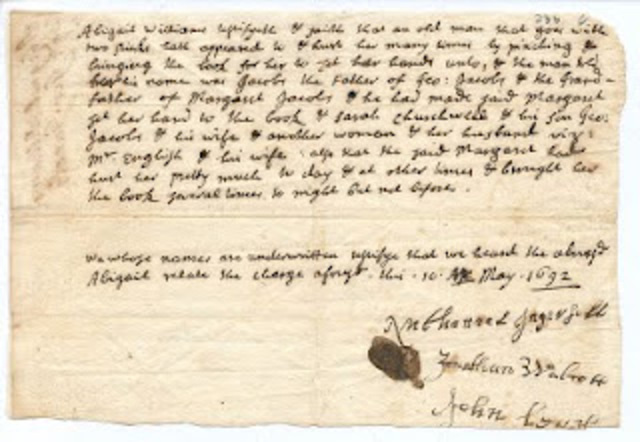 Abigail Williams testifyeth & saith that an old man that goes with
two sticks hath appeared to & hurt her many times by pinching &
bringing the book for her to set her hand unto, & the man told
her his name was Jacobs the Father of Geo: Jacobs & the Grand-
father of Margaret Jacobs & he had made said Margaret
set her hand to the book & Sarah Churchwell & his son Geo:
Jacobs & his wife & another woman & her husband viz:
Mr English & his wife: also that the said Margaret had
hurt her pretty much to day & at other times & brought her
the book several times to night but not before.
We whose names are underwritten testifye that we heard the
Abigail relate the charge aforesd. this 10 May. 1692
Nathanael Ingersoll
Jonathan
John